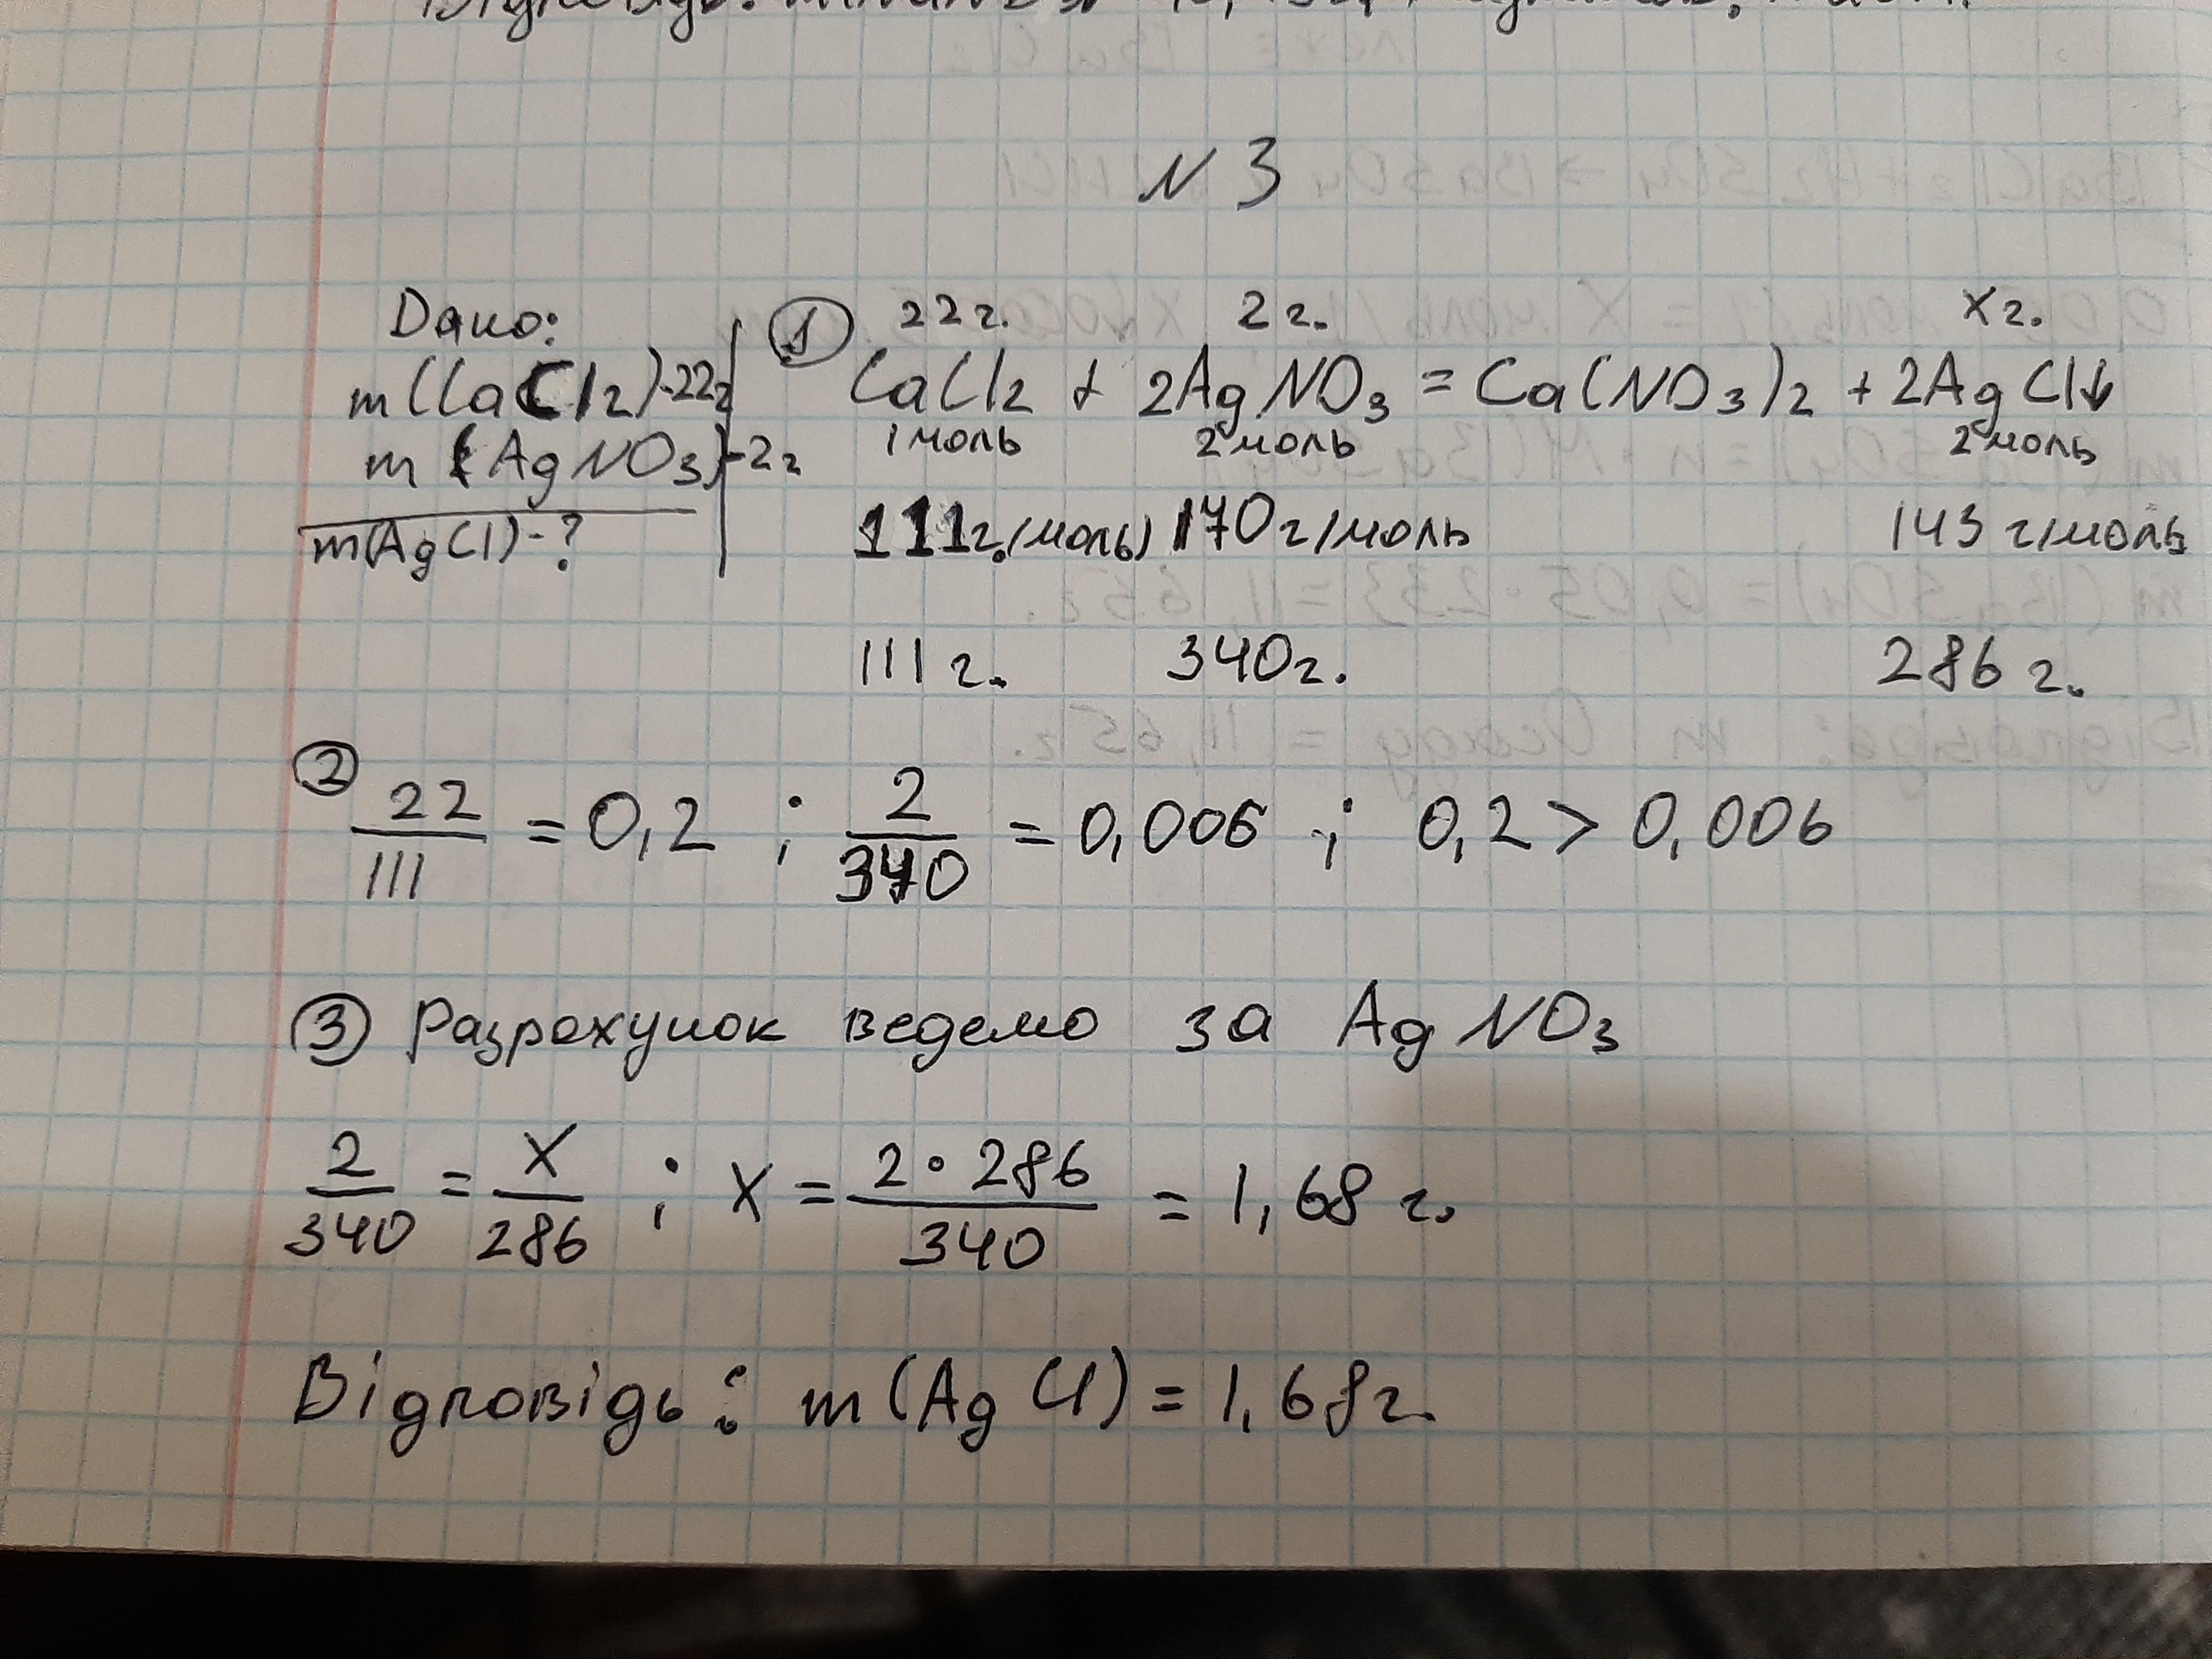 N 3
Дано:
m(CaCl2)-22г
m(AgNO3)-2г
m(AgCl)-?
① 22г. 2г. Xг.
CaCl2 + 2AgNO3 = Ca(NO3)2 + 2AgCl↓
1моль 2моль 2моль
111г.(моль) 170г/моль 143 г/моль
111 г. 340г. 286 г.
② 22/111 = 0,2 ; 2/340 = 0,006 ; 0,2 > 0,006
③ Разрохунок ведемо за AgNO3
2/340 = X/286 ; X = 2·286/340 = 1,68 г.
Відповідь: m(AgCl) = 1,68г.